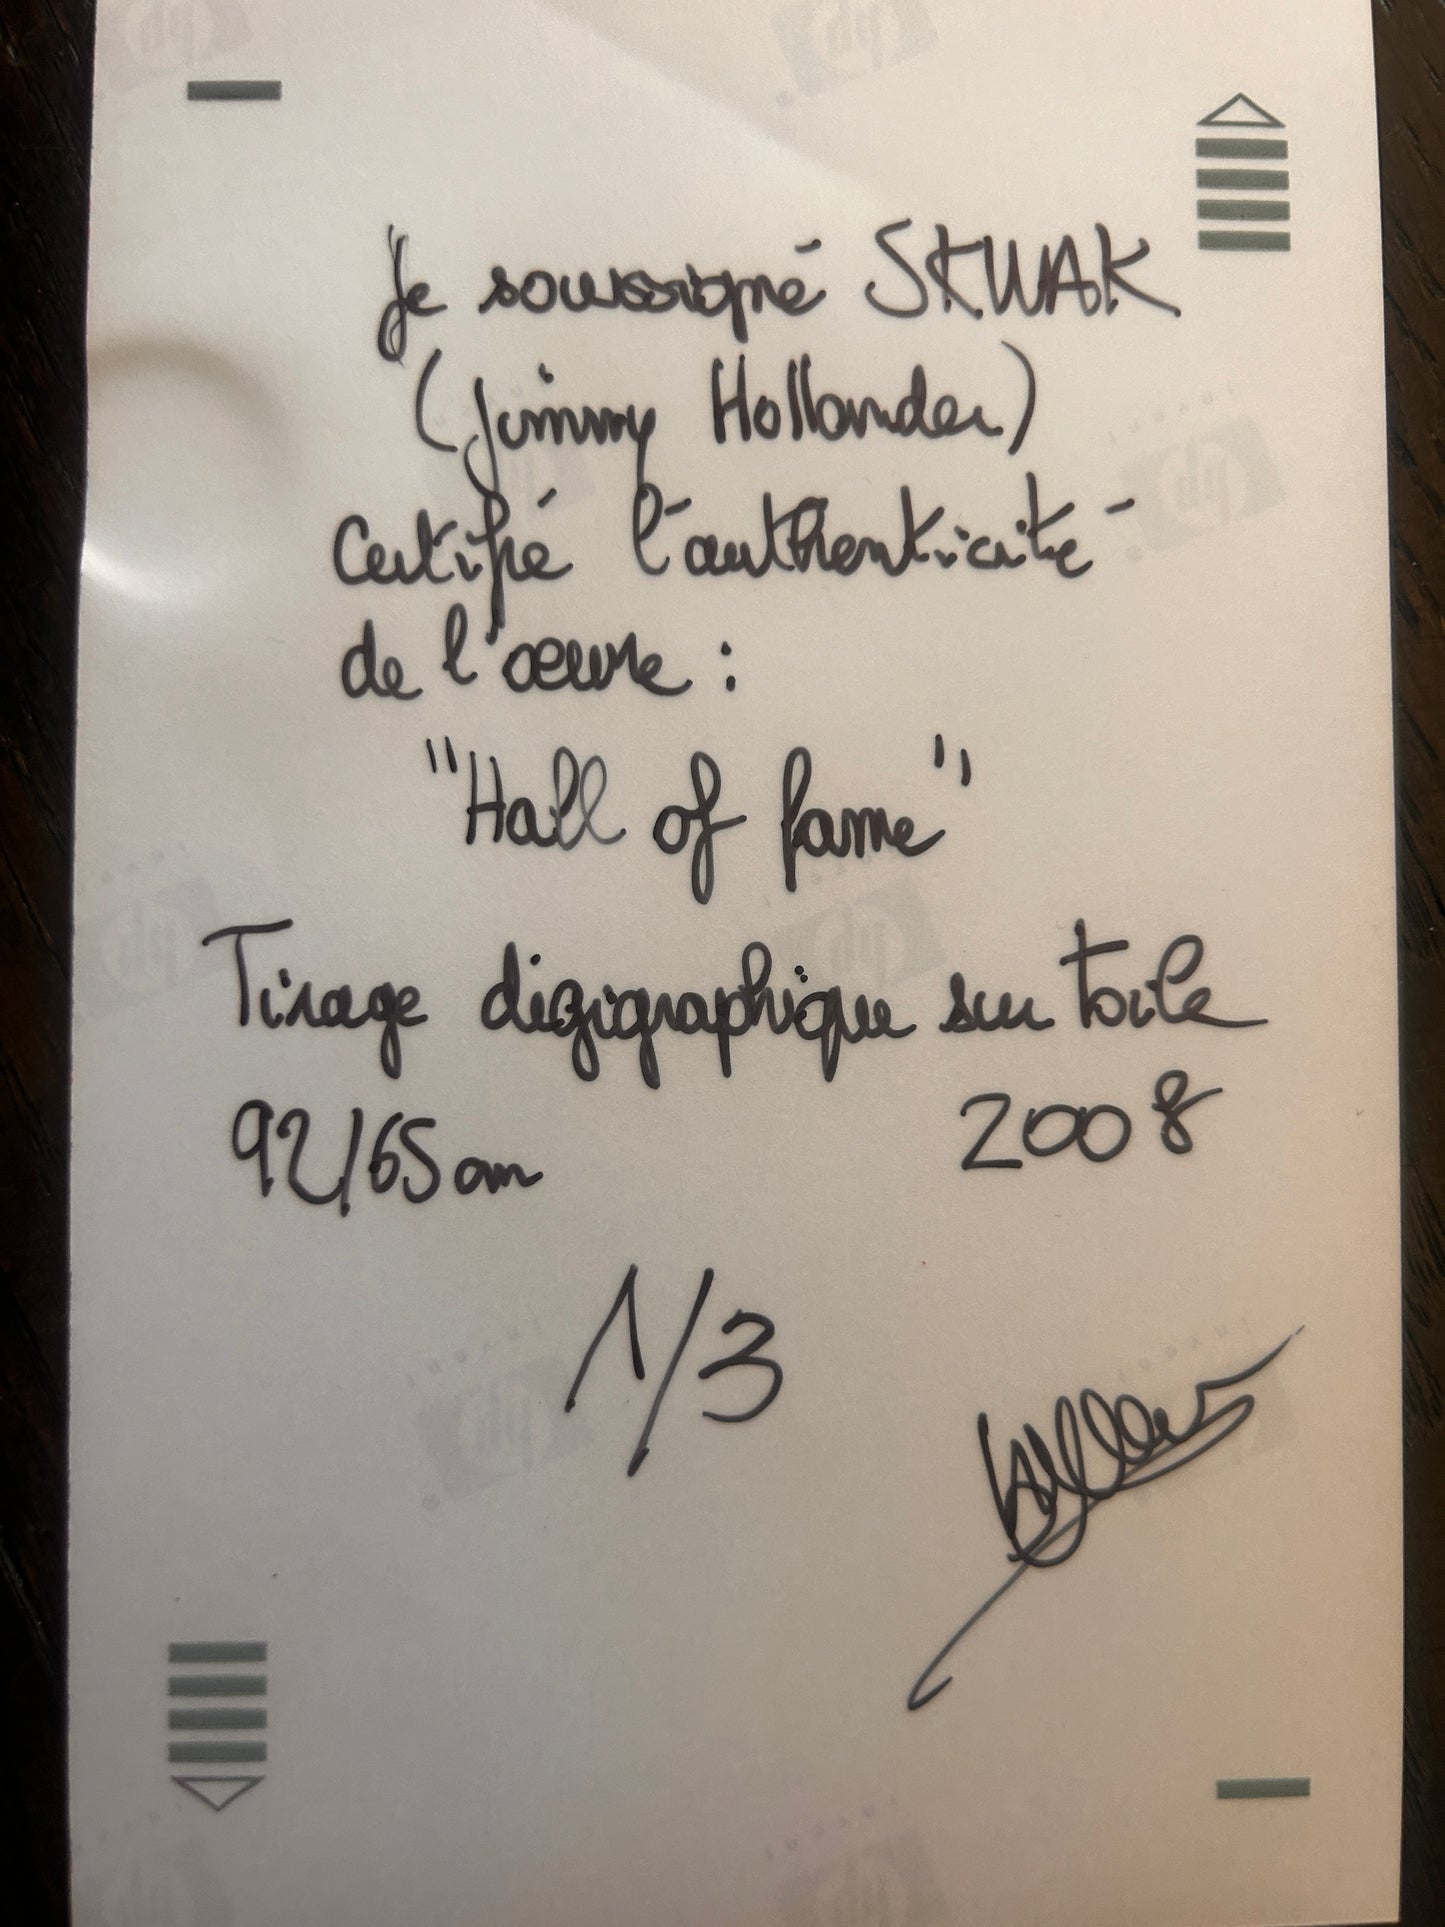 Je soussigné SKWAK
(Jimmy Hollander)
Certifié l'authenticité
de l'œuvre :
"Hall of fame"
Tirage digigraphique sur toile
92/65 cm 2008
1/3